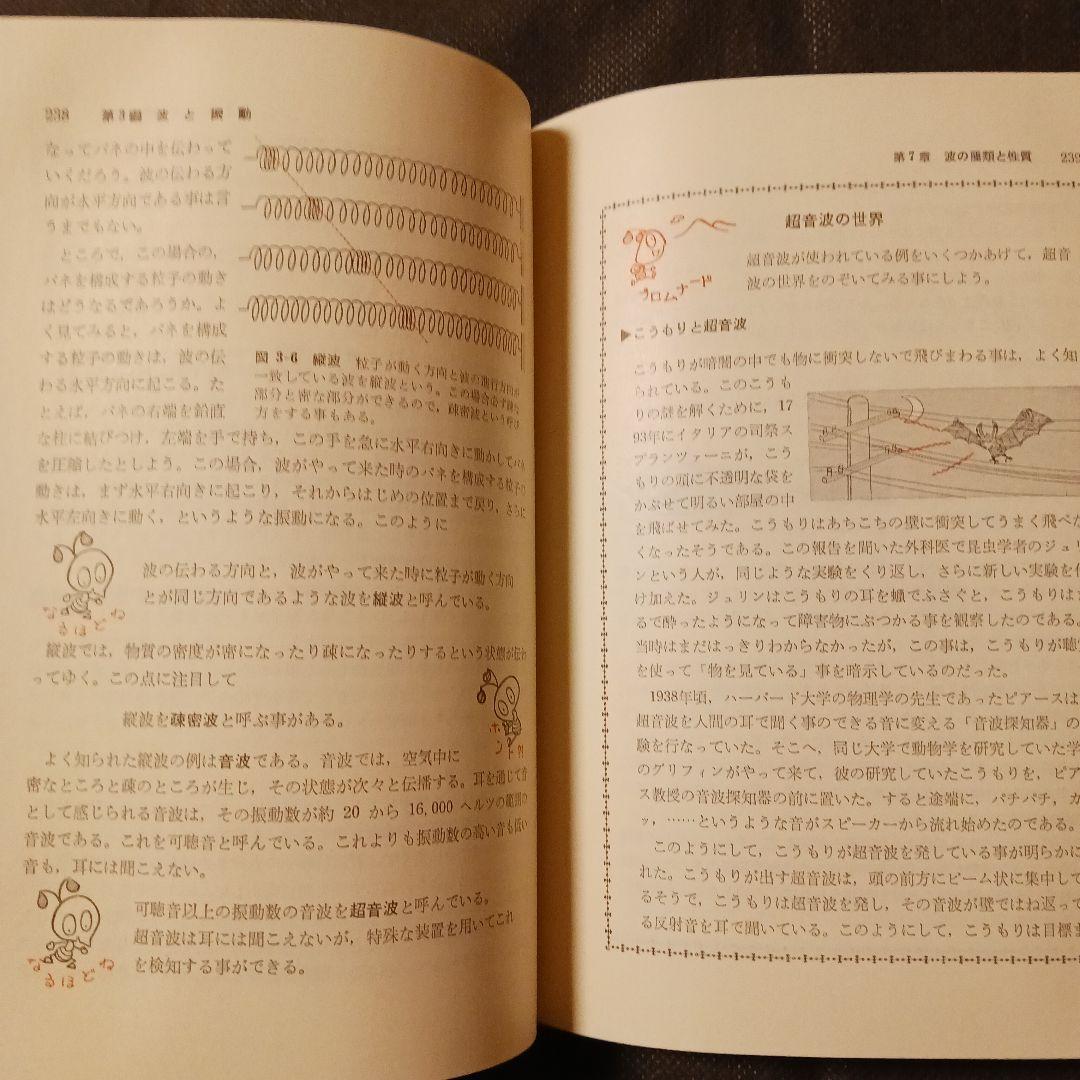 238 第3編 波と振動
なってバネの中を伝わって
いくだろう。波の伝わる方
向が水平方向である事は言
うまでもない。
ところで，この場合の，
バネを構成する粒子の動き
はどうなるであろうか。よ
く見てみると，バネを構成
する粒子の動きは，波の伝
わる水平方向に起こる。た
とえば，バネの右端を鉛直
図 3-6 縦波 粒子が動く方向と波の進行方向が
一致している波を縦波という。この場合必ず疎な
部分と密な部分ができるので，疎密波という呼び
方をする事もある。
な柱に結びつけ，左端を手で持ち，この手を急に水平右向きに動かしてバネ
を圧縮したとしよう。この場合，波がやって来た時のバネを構成する粒子の
動きは，まず水平右向きに起こり，それからはじめの位置まで戻り，さらに
水平左向きに動く，というような振動になる。このように
波の伝わる方向と，波がやって来た時に粒子が動く方向
とが同じ方向であるような波を縦波と呼んでいる。
なるほどね
縦波では，物質の密度が密になったり疎になったりするという状態が伝わ
ってゆく。この点に注目して
縦波を疎密波と呼ぶ事がある。
ホント?!
よく知られた縦波の例は音波である。音波では，空気中に
密なところと疎のところが生じ，その状態が次々と伝播する。耳を通じて音
として感じられる音波は，その振動数が約 20 から 16,000 ヘルツの範囲の
音波である。これを可聴音と呼んでいる。これよりも振動数の高い音も低い
音も，耳には聞こえない。
可聴音以上の振動数の音波を超音波と呼んでいる。
超音波は耳には聞こえないが，特殊な装置を用いてこれ
を検知する事ができる。
なるほどね
第7章 波の種類と性質 239
プロムナード
超音波の世界
超音波が使われている例をいくつかあげて，超音
波の世界をのぞいてみる事にしよう。
▶こうもりと超音波
こうもりが暗闇の中でも物に衝突しないで飛びまわる事は，よく知
られている。このこうも
りの謎を解くために，17
93年にイタリアの司祭ス
プランツァーニが，こう
もりの頭に不透明な袋を
かぶせて明るい部屋の中
を飛ばせてみた。こうもりはあちこちの壁に衝突してうまく飛べな
くなったそうである。この報告を聞いた外科医で昆虫学者のジュリ
ンという人が，同じような実験をくり返し，さらに新しい実験を付
け加えた。ジュリンはこうもりの耳を蠟でふさぐと，こうもりはま
るで酔ったようになって障害物にぶつかる事を観察したのである。
当時はまだはっきりわからなかったが，この事は，こうもりが聴覚
を使って「物を見ている」事を暗示しているのだった。
1938年頃，ハーバード大学の物理学の先生であったピアースは
超音波を人間の耳で聞く事のできる音に変える「音波探知器」の
験を行なっていた。そこへ，同じ大学で動物学を研究していた学
のグリフィンがやって来て，彼の研究していたこうもりを，ピア
ス教授の音波探知器の前に置いた。すると途端に，パチパチ，ガ
ッ，……というような音がスピーカーから流れ始めたのである。
このようにして，こうもりが超音波を発している事が明らかに
れた。こうもりが出す超音波は，頭の前方にビーム状に集中して
るそうで，こうもりは超音波を発し，その音波が壁ではね返って
る反射音を耳で聞いている。このようにして，こうもりは目標ま